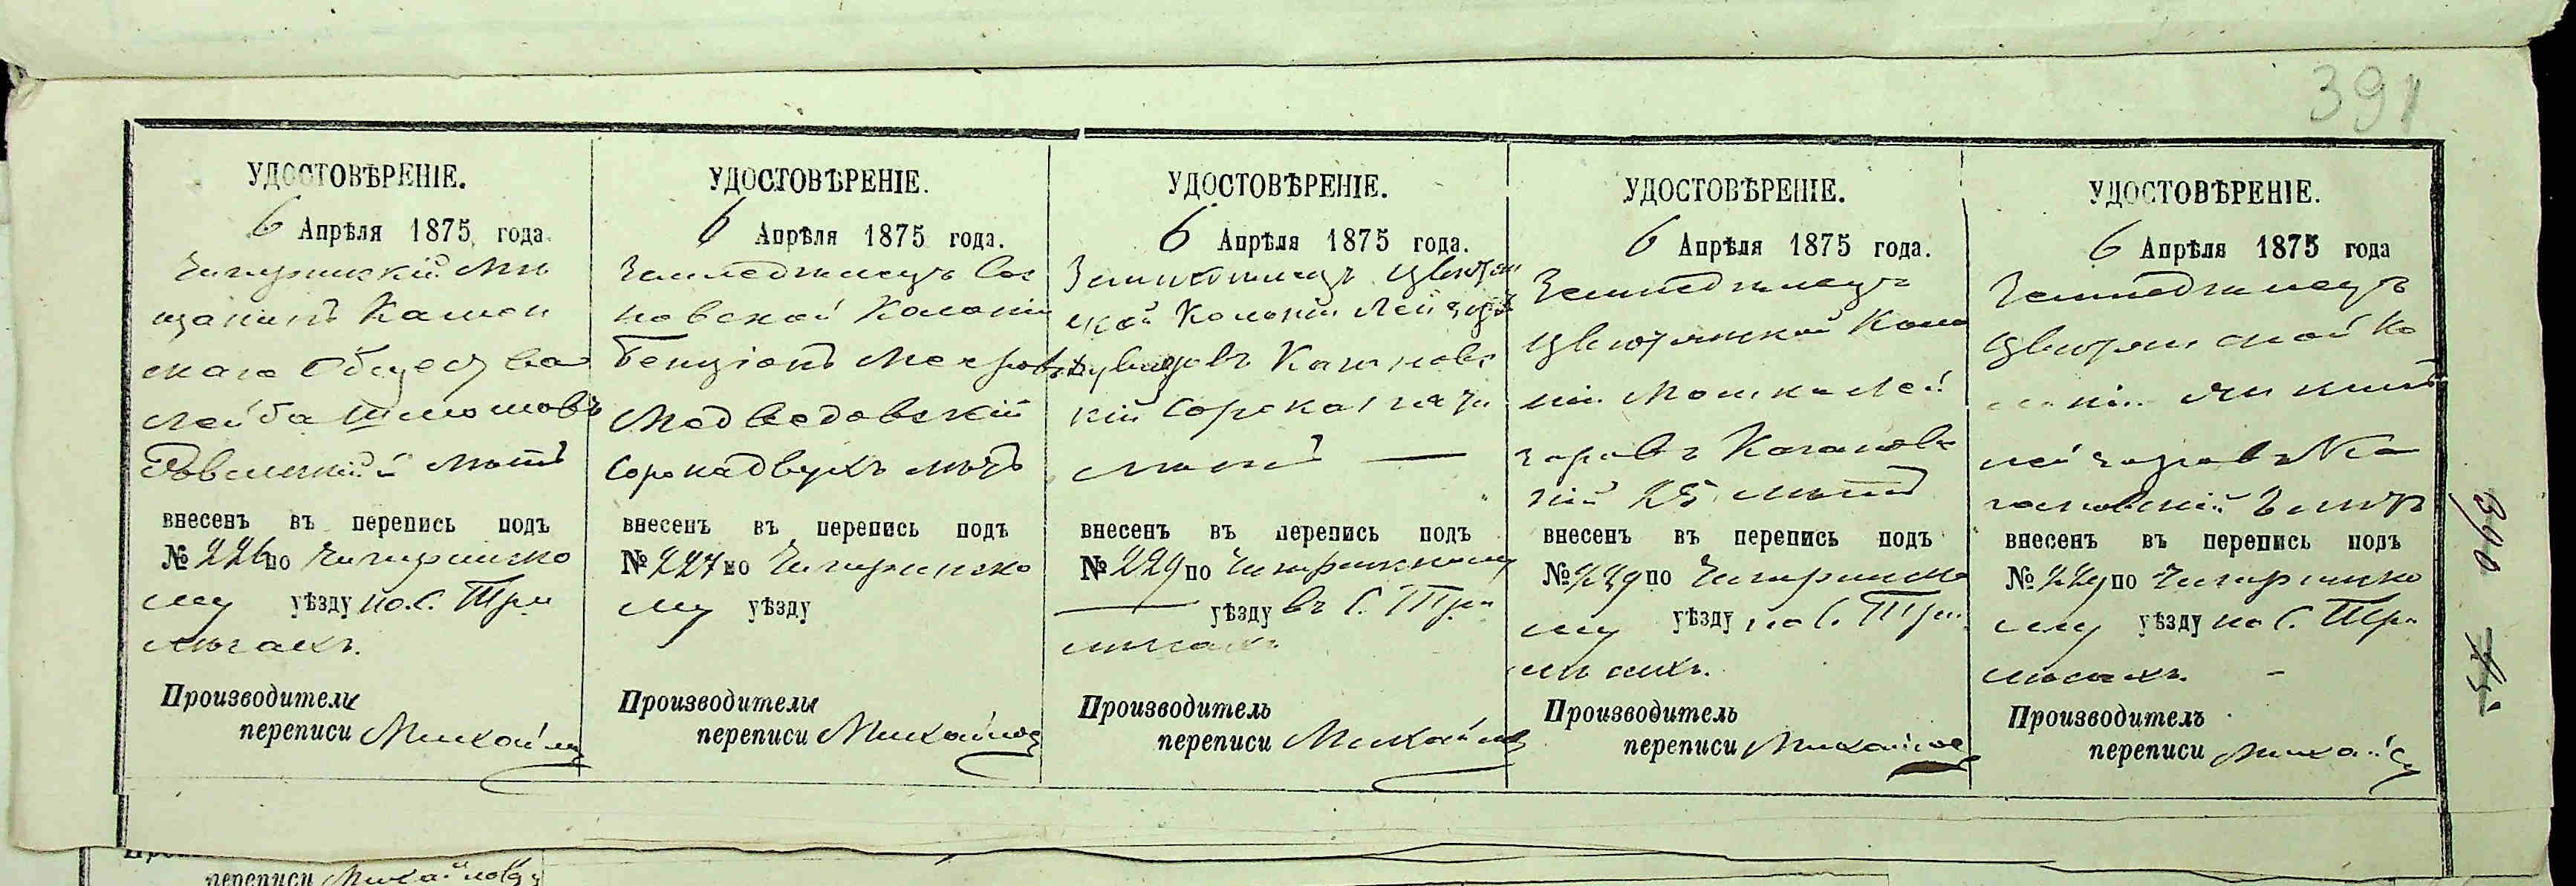 391
УДОСТОВѢРЕНІЕ.
6 Апрѣля 1875 года.
Чигиринскій Мѣ
щанинъ Камен
скаго Общества
Лейба Шлiомовъ
лѣтъ
внесенъ въ перепись подъ
№ 226 по Чигиринско
му уѣзду по С. Три
лѣсахъ.
Производитель
переписи Михайлов
УДОСТОВѢРЕНІЕ.
6 Апрѣля 1875 года.
Земледѣлецъ Сос
новской Колоніи
Бенціонъ Мееровъ
Медведовскій
Сорокадвухъ лѣтъ
внесенъ въ перепись подъ
№ 227 по Чигиринско
му уѣзду
Производитель
переписи Михайлов
УДОСТОВѢРЕНІЕ.
6 Апрѣля 1875 года.
Земледѣлецъ Цвѣтян
ской Колоніи Лейзеръ
Кагановс
кій Сорока пяти
лѣтъ —
внесенъ въ перепись подъ
№ 229 по Чигиринскому
— уѣзду въ С. Три
лѣсахъ
Производитель
переписи Михайлов
УДОСТОВѢРЕНІЕ.
6 Апрѣля 1875 года.
Земледѣлецъ
Цвѣтянской Коло
ніи Мошка Лей
зеровъ Кагановс
кій 25 лѣтъ
внесенъ въ перепись подъ
№ 229 по Чигиринско
му уѣзду по С. Три
лѣсахъ.
Производитель
переписи Михайлов
УДОСТОВѢРЕНІЕ.
6 Апрѣля 1875 года
Земледѣлецъ
Цвѣтянской Ко
лоніи
Лейзеровъ Ка
гановскій
внесенъ въ перепись подъ
№ 229 по Чигиринско
му уѣзду по С. Три
лѣсахъ. -
Производитель
переписи Михайлов
390
переписи Михайлов